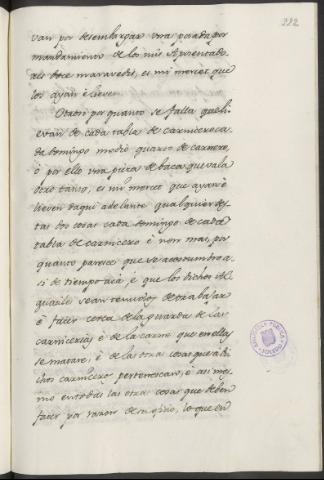 332
van por desembargar una posada por
mandamiento de los mis Aposentado-
res doce maravedis, es mi merced que
los ayan è lieven
Otrosi por quanto se falla que lie
van de cada tabla de carniceroca
da domingo medio quarto de carnero,
ò por ello una pieza de baca que vala
otro tanto, es mi merced que ayan è
lieven daqui adelante qualquier de
tas dos cosas cada domingo de cada
tabla de carnicero è non mas, por
quanto parece que se acostumbro a
si de tiempo acà, è que los dichos Al
guaciles sean tenudos de trabajar
è facer cerca de la guarda de las
carnicerias è de la carne que en ellas
se matare, è de las otras cosas que a di
chos carniceros pertenescan, è asi mes
mo en todas las otras cosas que deben
facer por razon de su oficio, lo que en
BIBLIOTECA PUBLICA
TOLEDO